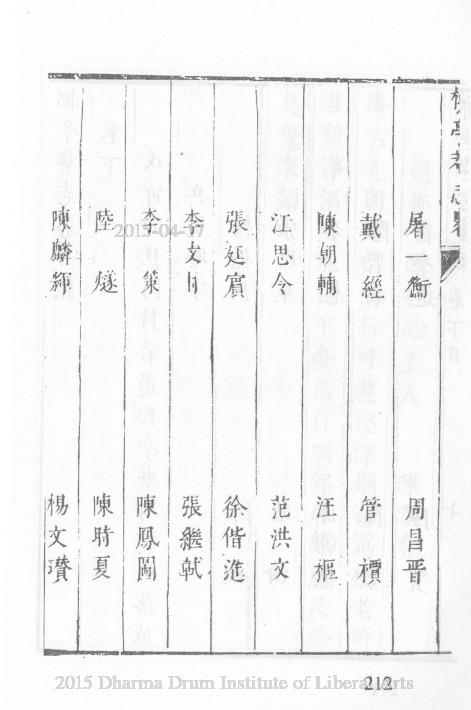 屠一衡 周昌晋
戴經 管櫝
陳朝輔 汪樞
江思令 范洪文
張延賓 徐偕進
李文 張繼軾
李策 陳鳳圖
陸燧 陳時夏
陳麟輝 楊文瓚
212
2015-04-17
2015 Dharma Drum Institute of Liberal Arts